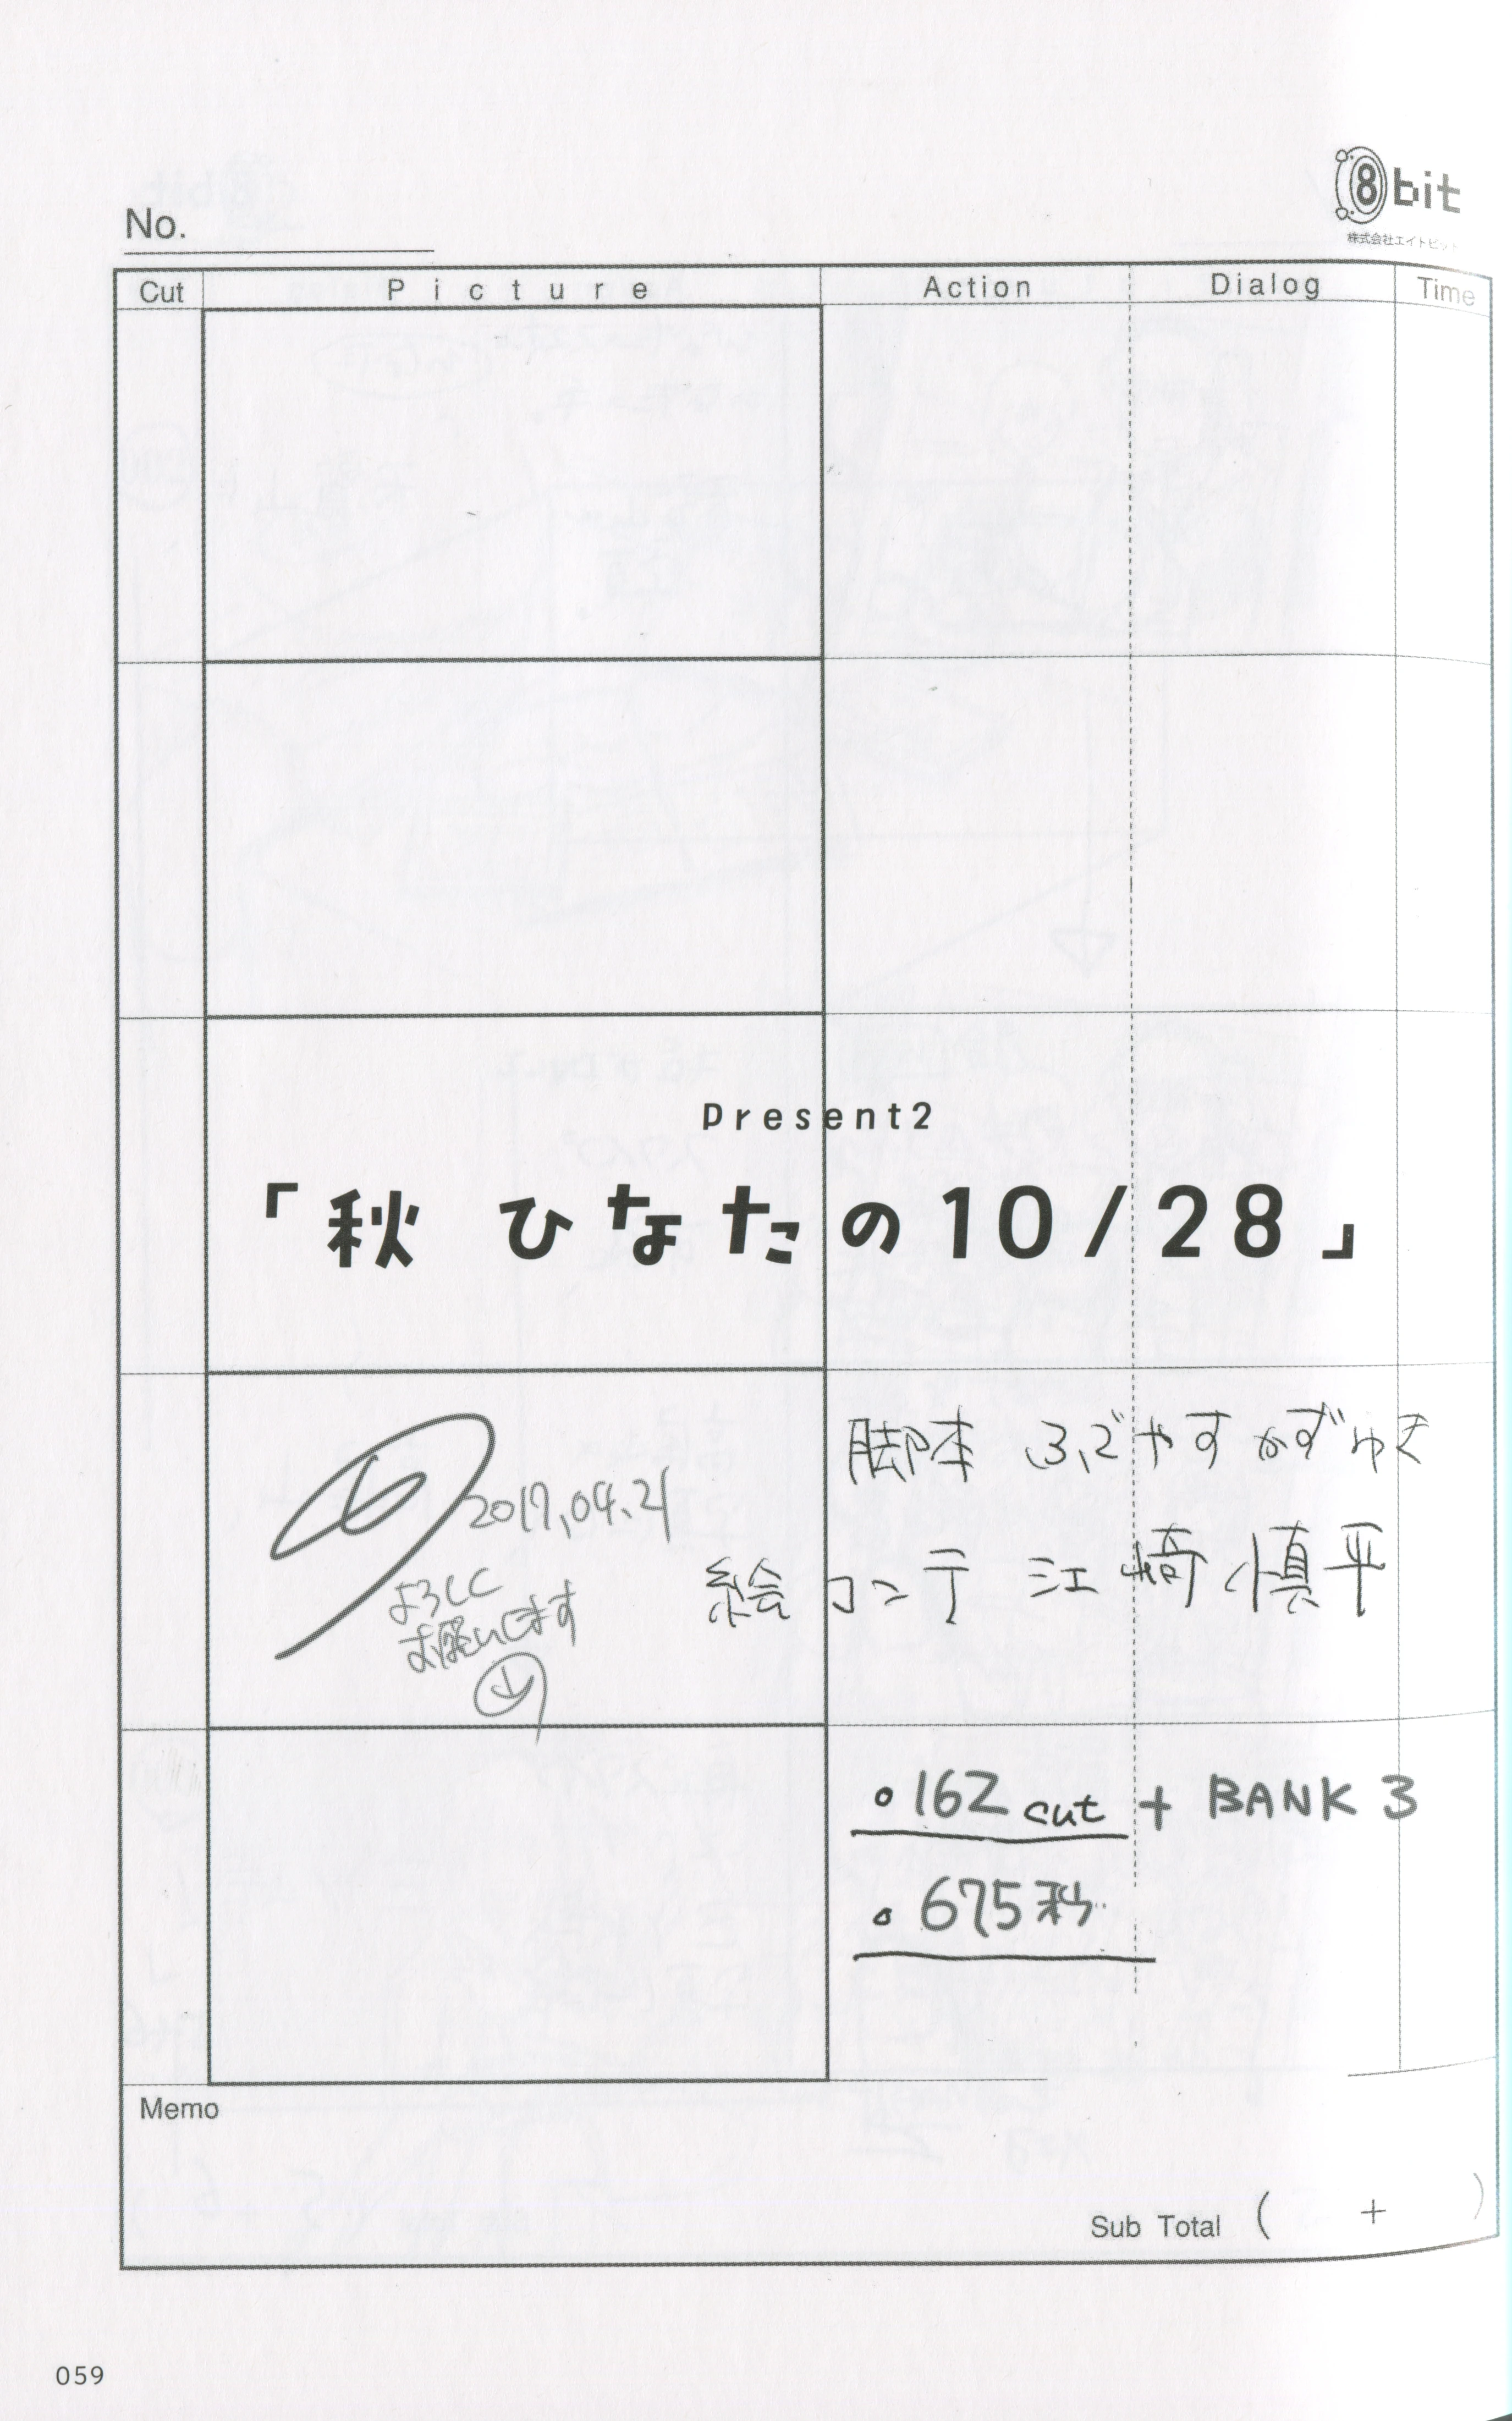 8bit
株式会社エイトビット
No.
Cut Picture Action Dialog Time
Present2
「秋 ひなたの10/28」
脚本 ふでやすかずゆき
2017.04.21
絵コンテ 江崎慎平
よろしく
お願いします
・162cut + BANK 3
・675秒
Memo
Sub Total ( + )
059